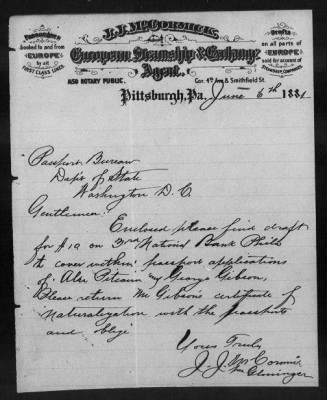 J. J. McCORMICK,
European Steamship & Exchange
Agent.
ALSO NOTARY PUBLIC.
Cor. 4th Ave & Smithfield St.
Passengers
booked to and from
EUROPE
by all
FIRST CLASS LINES
Drafts
on all parts of
EUROPE
sold for account of
STEAMSHIP COMPANIES.
Pittsburgh, Pa. June 6th 1881
Passport Bureau
Dept of State
Washington D. C.
Gentlemen
Enclosed please find draft
for $10 on 3rd National Bank Phila
to cover within passport applications
of Alex and George Gibson,
Please return Mr Gibson's certificate of
naturalization with the passports
and oblige
Yours Truly
J. J. McCormick